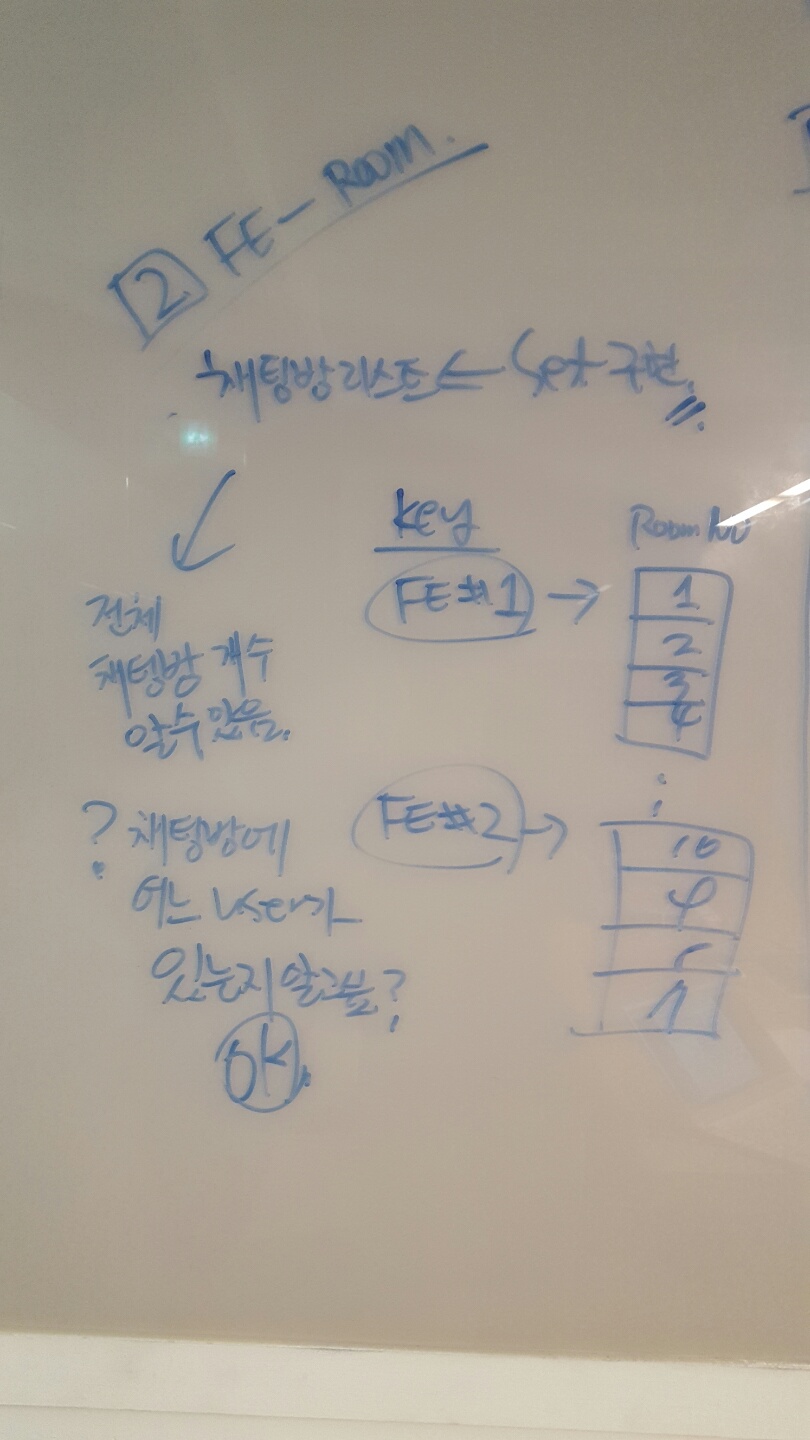 2 FE - ROOM.
채팅방 리스트 ← Set 구현.
전체
채팅방 개수
알수 있음.
? 채팅방에
어느 user가
있는지 알고븜?
OK.
KEY
FE#1 →
FE#2 →
Room No
1
2
3
4
10
9
1